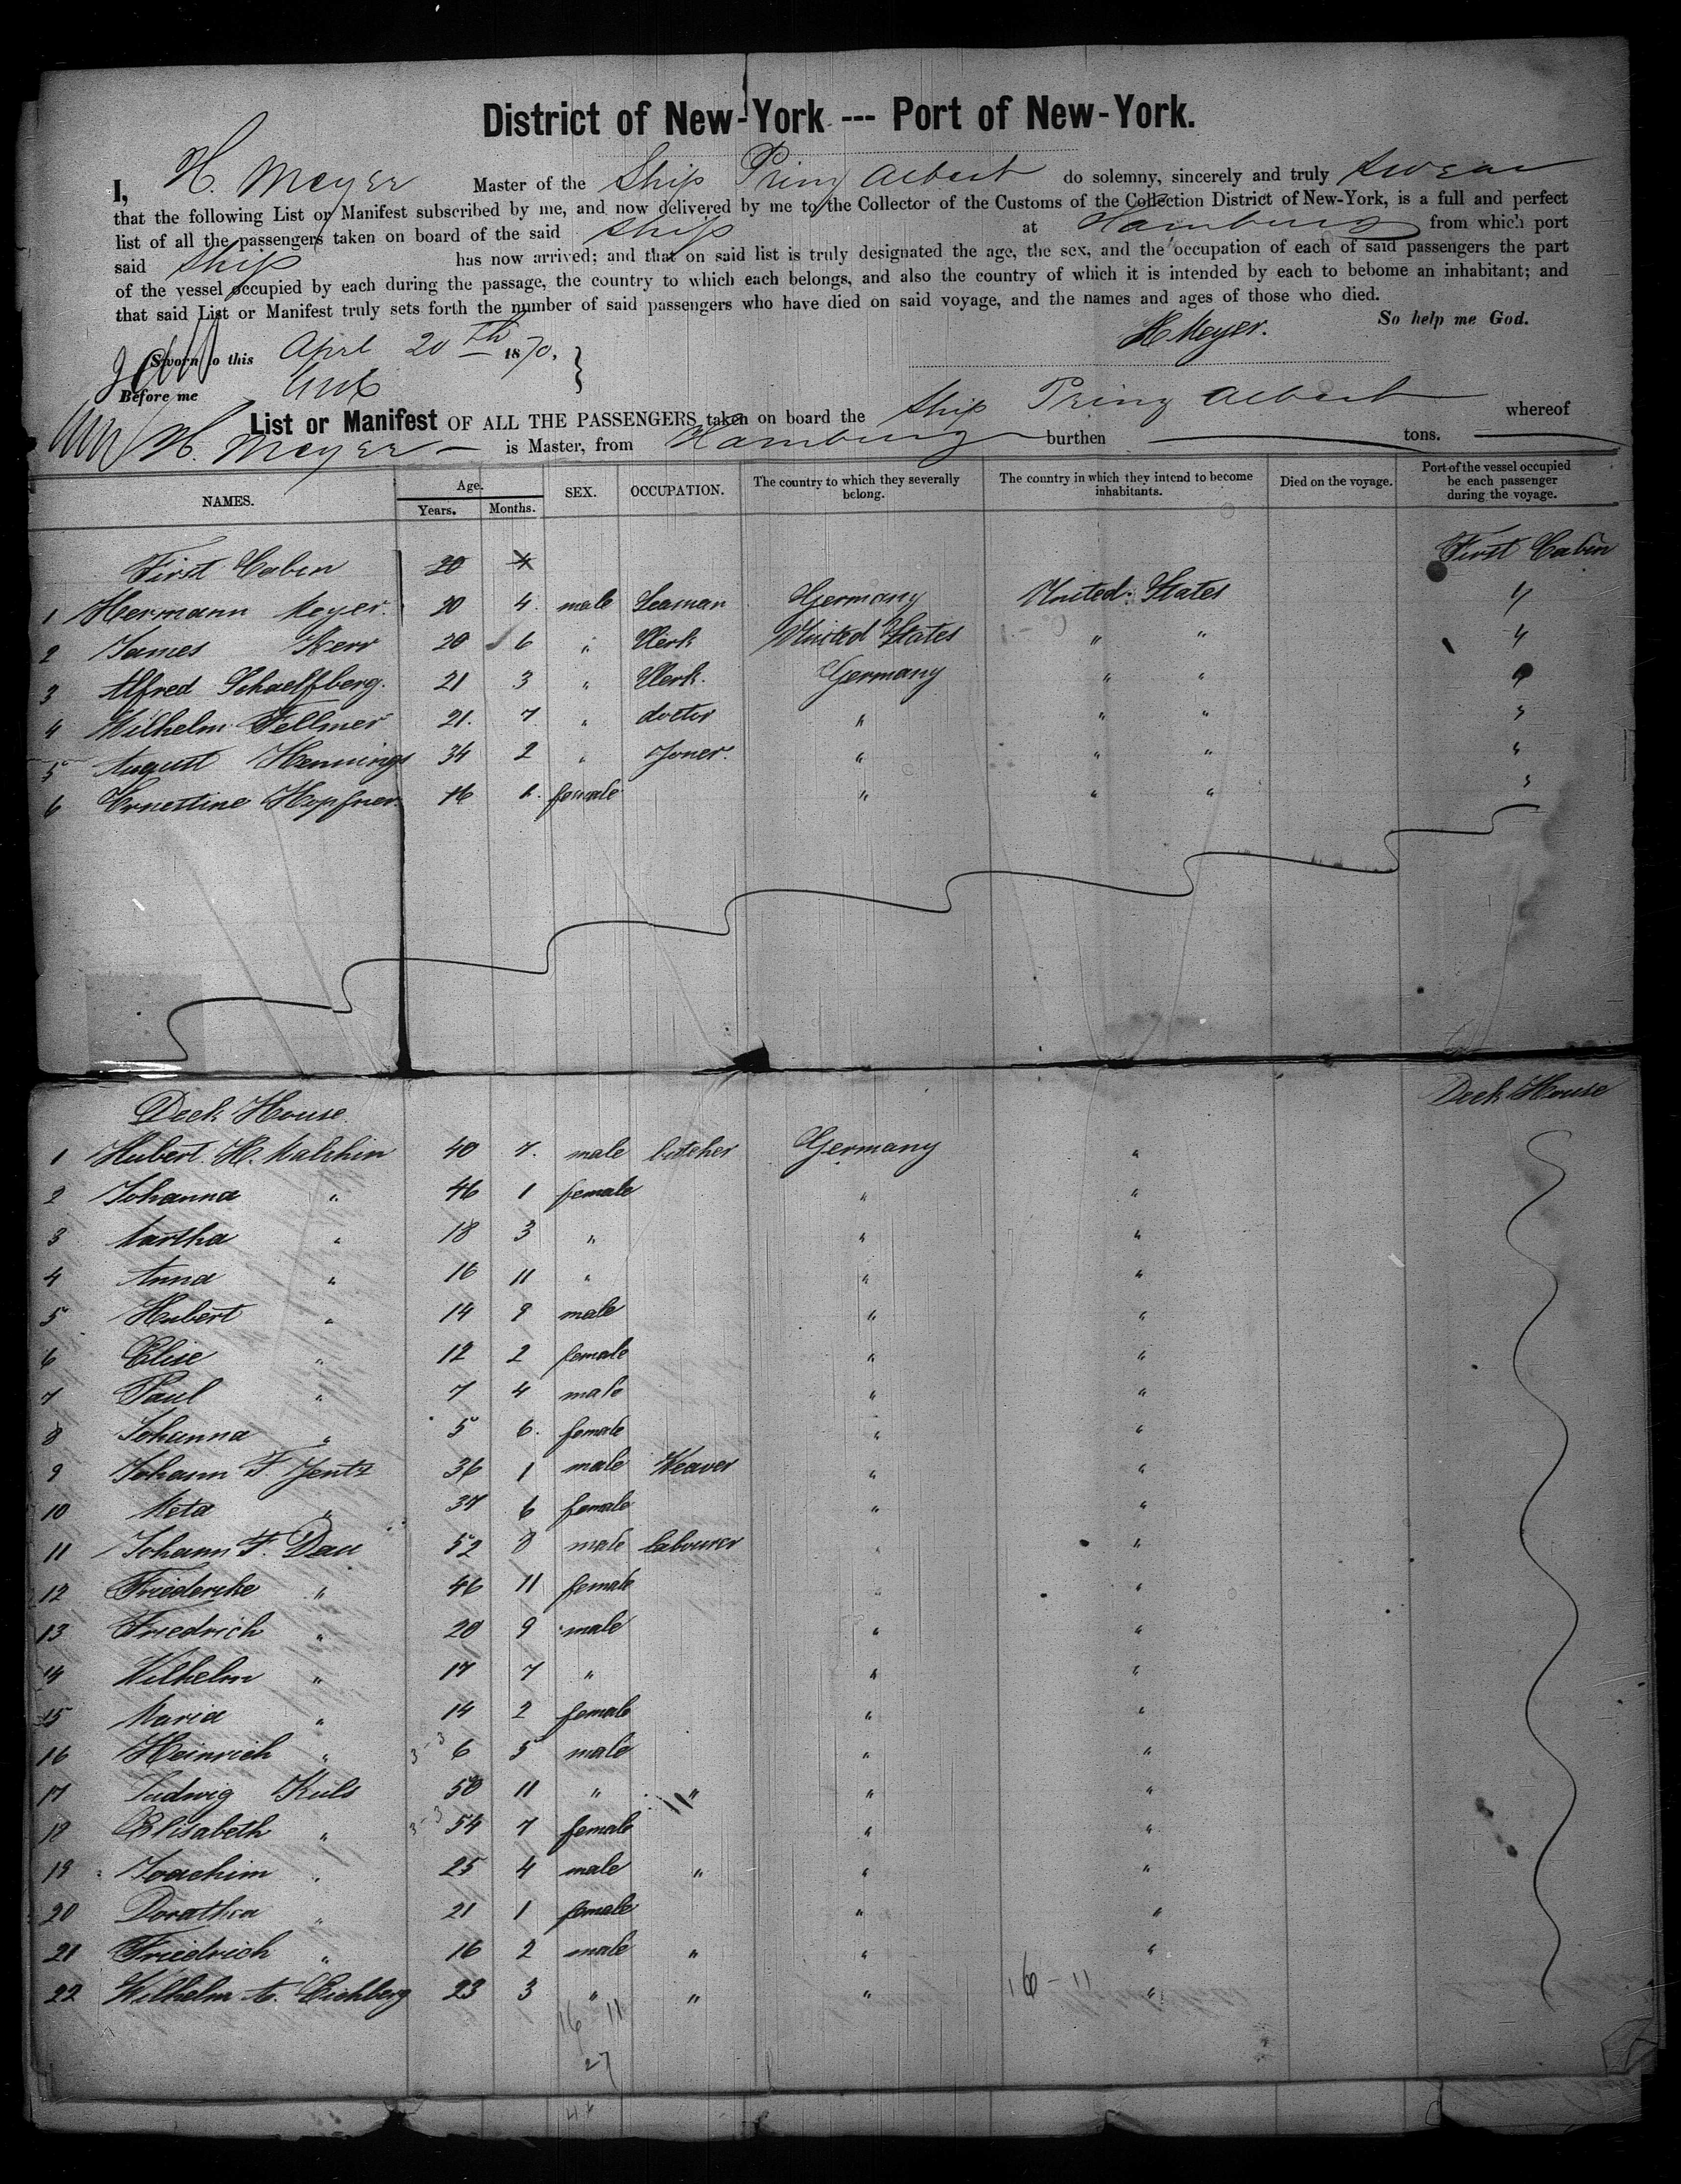 District of New-York --- Port of New-York.
I, H. Meyer Master of the Ship Prinz Albert do solemny, sincerely and truly swear
that the following List or Manifest subscribed by me, and now delivered by me to the Collector of the Customs of the Collection District of New-York, is a full and perfect
list of all the passengers taken on board of the said Ship at Hamburg from which port
said Ship has now arrived; and that on said list is truly designated the age, the sex, and the occupation of each of said passengers the part
of the vessel occupied by each during the passage, the country to which each belongs, and also the country of which it is intended by each to bebome an inhabitant; and
that said List or Manifest truly sets forth the number of said passengers who have died on said voyage, and the names and ages of those who died.
So help me God.
Sworn to this April 20th 1870,
H Meyer.
Before me
List or Manifest OF ALL THE PASSENGERS taken on board the Ship Prinz Albert whereof
H. Meyer is Master, from Hamburg burthen tons.
NAMES. Age. Years. Months. SEX. OCCUPATION. The country to which they severally belong. The country in which they intend to become inhabitants. Died on the voyage. Port of the vessel occupied be each passenger during the voyage.
First Cabin 20 First Cabin
1 Hermann Meyer. 20 4. male Seaman Germany United States "
2 James Kerr 20 6 " Clerk United States " " "
3 Alfred Schaelfberg. 21 3 " Clerk. Germany " " "
4 Wilhelm Fellmer 21. 7 " doctor " " " "
5 August Hennings 34 2 " Joner. " " " "
6 Ernestine Hopfner. 16 female " " " "
Deck House Deck House
1 Hubert. H. Malchin 40 7. male butcher Germany "
2 Johanna " 46 1 female " "
3 Martha " 18 3 " " "
4 Anna " 16 11 " " "
5 Hubert " 14 9 male " "
6 Elise " 12 2 female " "
7 Paul " 7 4 male " "
8 Johanna " 5 6. female " "
9 Johann F Jentz 36 1 male Weaver " "
10 Meta " 37 6 female " "
11 Johann F. Dau 52 8 male labourer " "
12 Friedericke " 46 11 female " "
13 Friedrich " 20 9 male " "
14 Wilhelm " 17 7 " " "
15 Maria " 14 2 female " "
16 Heinrich " 3-3 6 5 male " "
17 Ludwig Kuls 50 11 " " " "
18 Elisabeth " 3-3 54 7 female " "
19 Joachim " 25 4 male " " "
20 Dorathea " 21 1 female " "
21 Friedrich " 16 2 male " " "
22 Wilhelm A. Eichberg 23 3 " " " 16-11 "
16 11
27